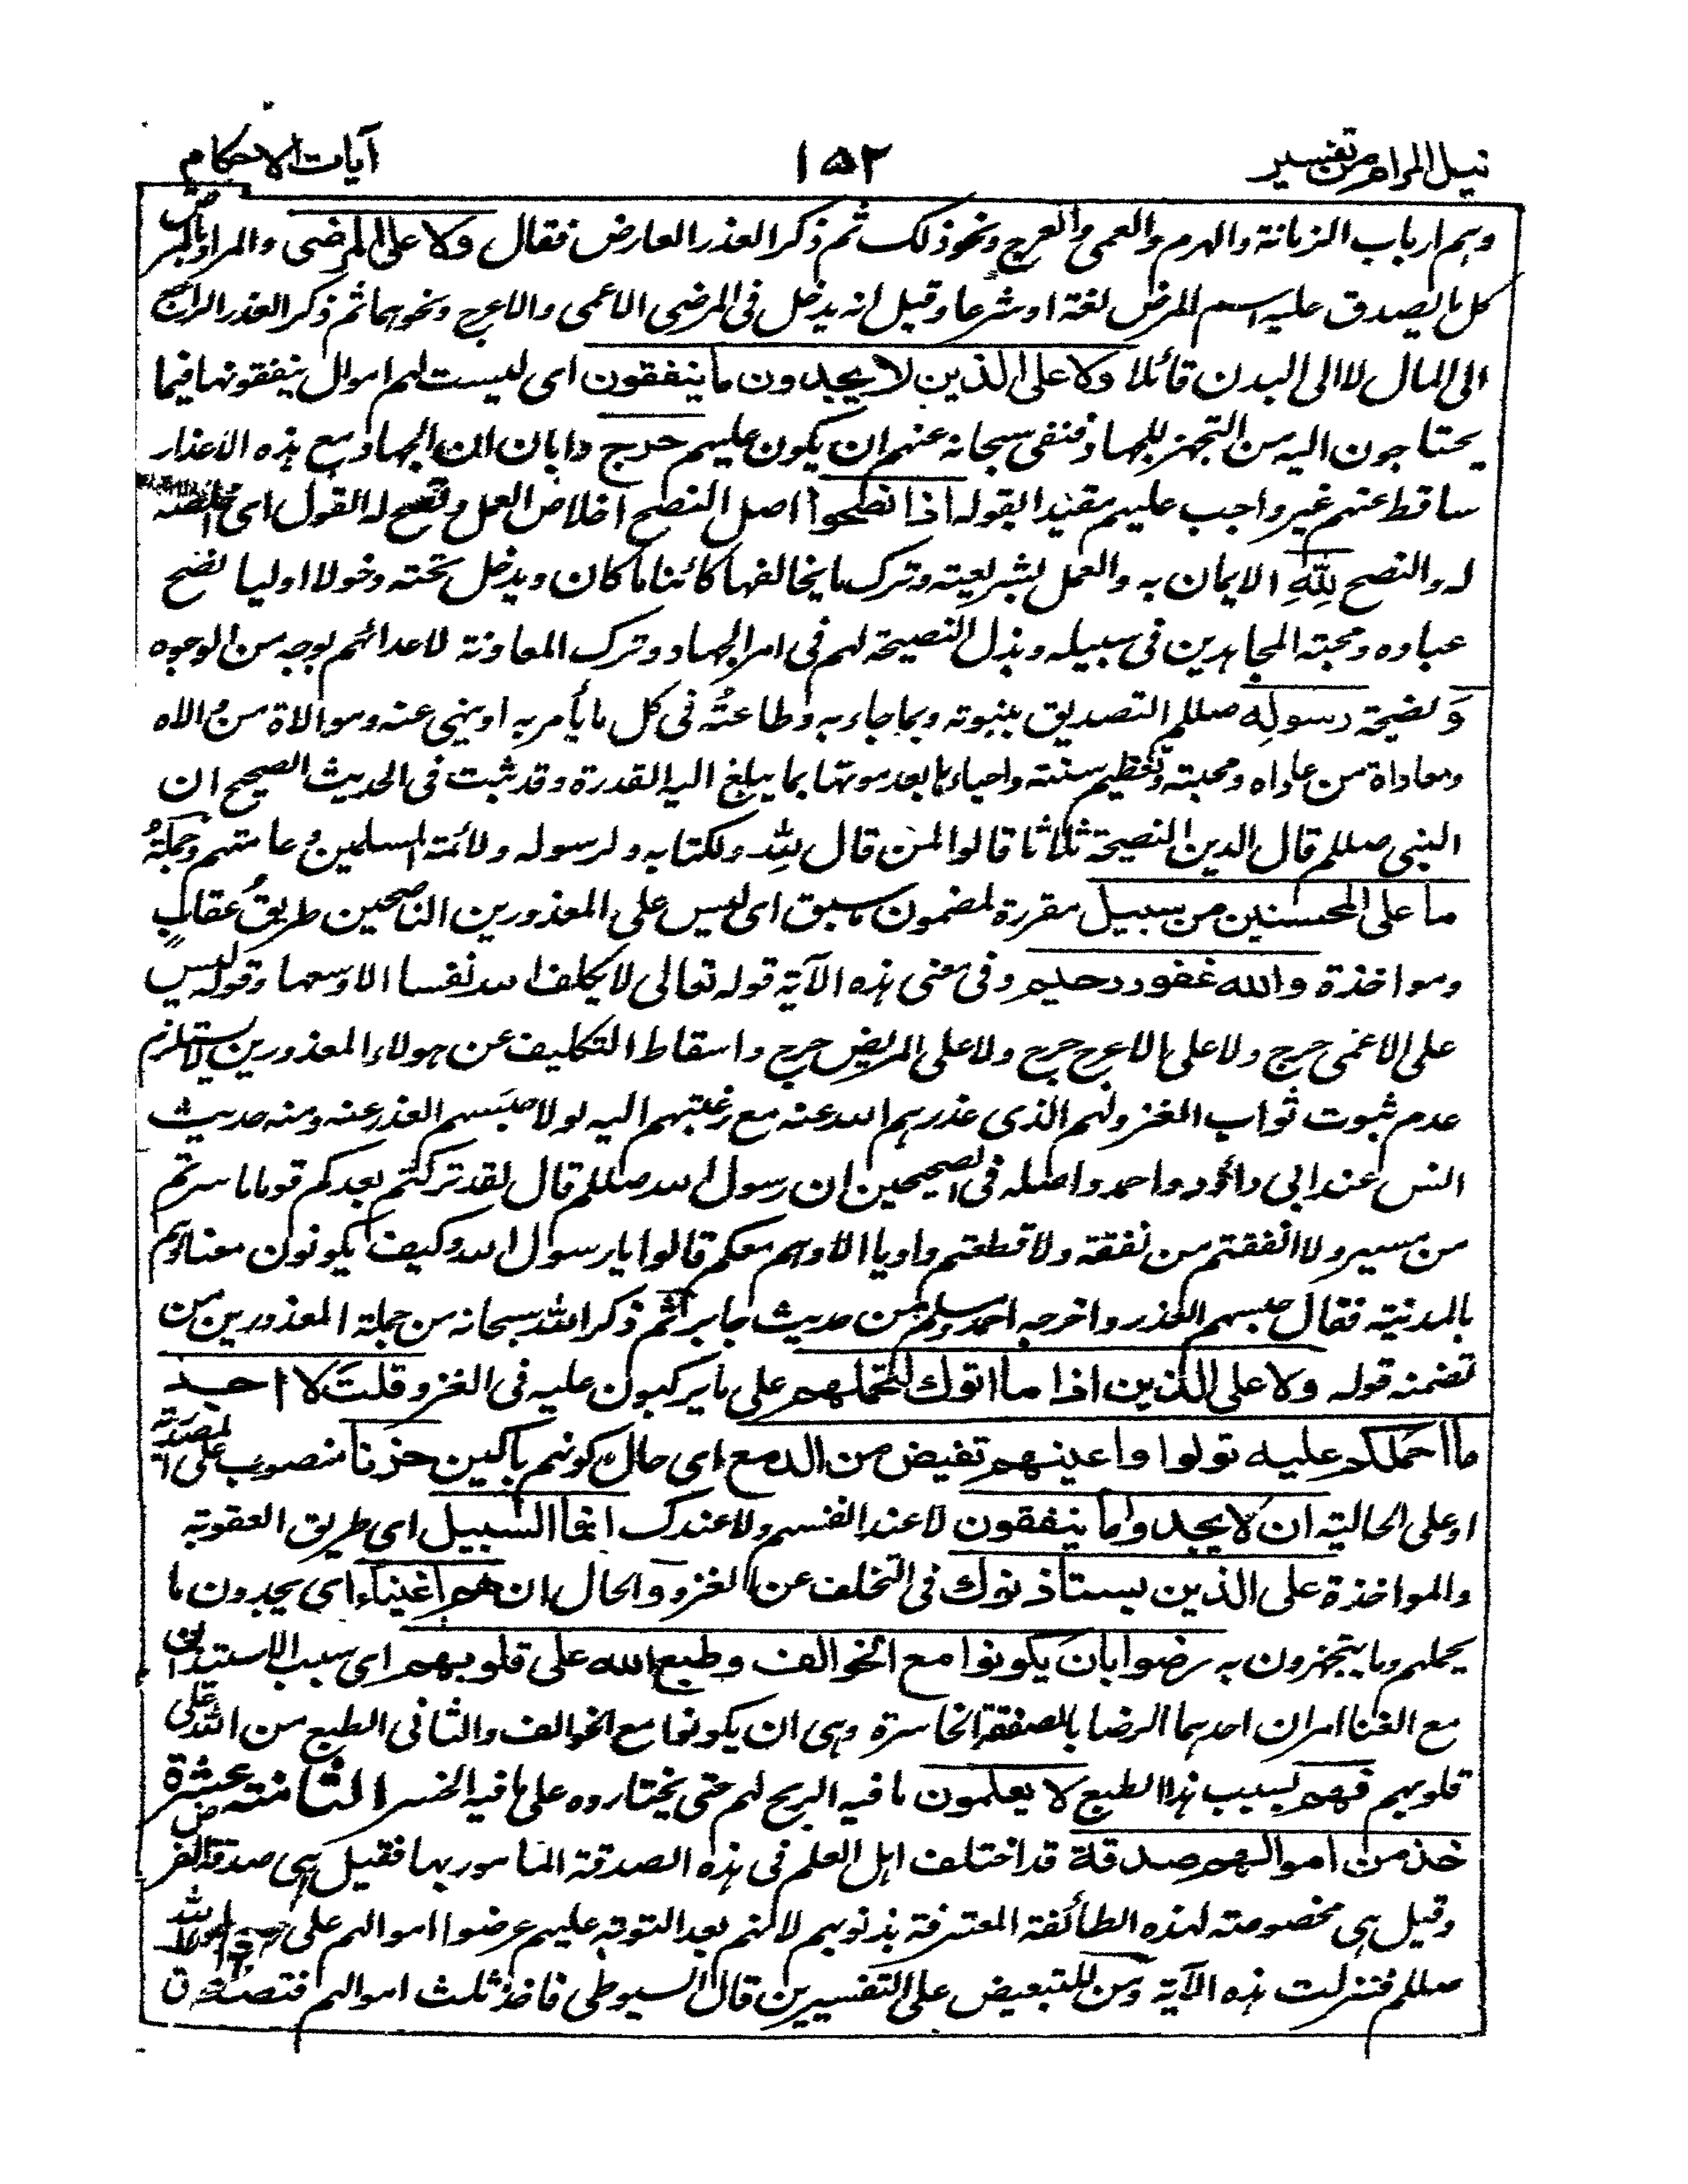 نيل المرام من تفسير ١٥٢ آيات الاحكام
وهم ارباب الزمانة والهرم والعمى والعرج ونحو ذلك ثم ذكر العذر العارض فقال ولا على المرضى والمراد بالمرض
كل ما يصدق عليه اسم المرض لغة او شرعا وقيل انه يدخل فى المرضى الاعمى والاعرج ونحوهما ثم ذكر العذر الراجع
الى المال لا الى البدن قائلا ولا على الذين لا يجدون ما ينفقون اى ليست لهم اموال ينفقونها فيما
يحتاجون اليه من التجهز للجهاد فنفى سبحانه عنهم ان يكون عليهم حرج وابان ان الجهاد مع هذه الاعذار
ساقط عنهم غير واجب عليهم مقيدا بقوله اذا نصحوا اصل النصح اخلاص العمل ونصح له القول اى اخلصه
له والنصح لِلّٰهِ الايمان به والعمل بشريعته وترك ما يخالفها كائنا ما كان ويدخل تحته دخولا اوليا نصح
عباده ومحبة المجاهدين فى سبيله وبذل النصيحة لهم فى امر الجهاد وترك المعاونة لاعدائهم بوجه من الوجوه
وَ نصيحة رسولِه صللم التصديق بنبوته وبما جاء به وطاعته فى كل ما يأمر به او ينهى عنه وموالاة من والاه
ومعاداة من عاداه ومحبته وتعظيم سنته واحياءها بعد موتها بما يبلغ اليه القدرة وقد ثبت فى الحديث الصحيح ان
النبى صللم قال الدين النصيحة ثلاثا قالوا لمن قال لله ولكتابه ولرسوله ولائمة المسلمين وعامتهم وجملةُ
ما على المحسنين من سبيل مقررة لمضمون ما سبق اى ليس على المعذورين الناصحين طريقُ عقابٍ
ومواخذة والله غفور رحيم وفى معنى هذه الآية قوله تعالى لا يكلف الله نفسا الا وسعها وقوله ليس
على الاعمى حرج ولا على الاعرج حرج ولا على المريض حرج واسقاط التكليف عن هولاء المعذورين لا يستلزم
عدم ثبوت ثواب الغزو لهم الذى عذرهم الله عنه مع رغبتهم اليه لولا حبسهم العذر عنه ومنه حديث
انس عند ابى داؤد واحمد واصله فى الصحيحين ان رسول الله صللم قال لقد تركتم بعدكم قوما ما سرتم
من مسير ولا انفقتم من نفقة ولا قطعتم واديا الا وهم معكم قالوا يا رسول الله وكيف يكونون معنا وهم
بالمدينة فقال حبسهم العذر واخرجه احمد ومسلم من حديث جابر ثم ذكر الله سبحانه من جملة المعذورين من
تضمنه قوله ولا على الذين اذا ما اتوك لتحملهم على ما يركبون عليه فى الغزو قلتَ لا اجد
ما احملكم عليه تولوا واعينهم تفيض من الدمع اى حال كونهم باكين حزنا منصوب على المصدرية
او على الحالية ان لا يجدوا ما ينفقون لا عند انفسهم ولا عندك انما السبيل اى طريق العقوبة
والمواخذة على الذين يستاذنوك فى التخلف عن الغزو و الحال ان هم اغنياء اى يجدون ما
يحملهم وما يتجهزون به رضوا بان يكونوا مع الخوالف وطبع الله على قلوبهم اى سبب الاستيذان
مع الغنا امران احدهما الرضا بالصفقة الخاسرة وهى ان يكونوا مع الخوالف والثانى الطبع من الله على
قلوبهم فهم بسبب هذا الطبع لا يعلمون ما فيه الربح لهم حتى يختاروه على ما فيه الخسر الثامنة عشرة
خذ من اموالهم صدقة قد اختلف اهل العلم فى هذه الصدقة المامور بها فقيل هى صدقة الفرض
وقيل هى مخصوصة لهذه الطائفة المعترفة بذنوبهم لانهم بعد التوبة عليهم عرضوا اموالهم على رسول الله
صللم فنزلت هذه الآية ومن للتبعيض على التفسيرين قال السيوطى فاخذ ثلث اموالهم فتصدق